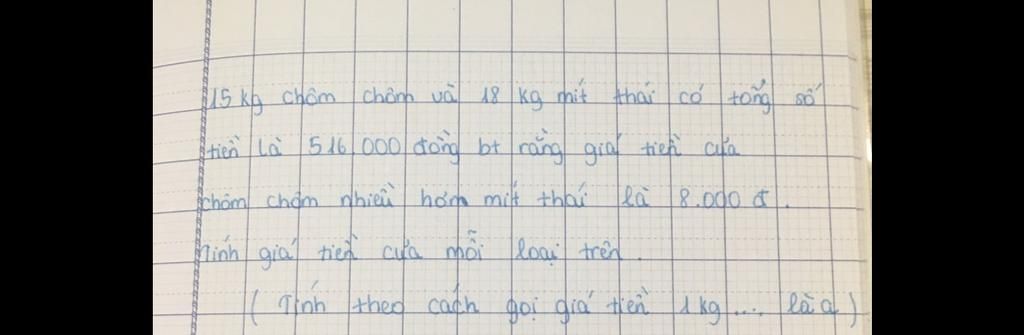 15 kg chôm chôm và 18 kg mít thái có tổng số
tiền là 516.000 đồng bt rằng giá tiền của
chôm chôm nhiều hơn mít thái là 8.000 đ.
Tính giá tiền của mỗi loại trên.
( Tính theo cách gọi giá tiền 1 kg .... là a )